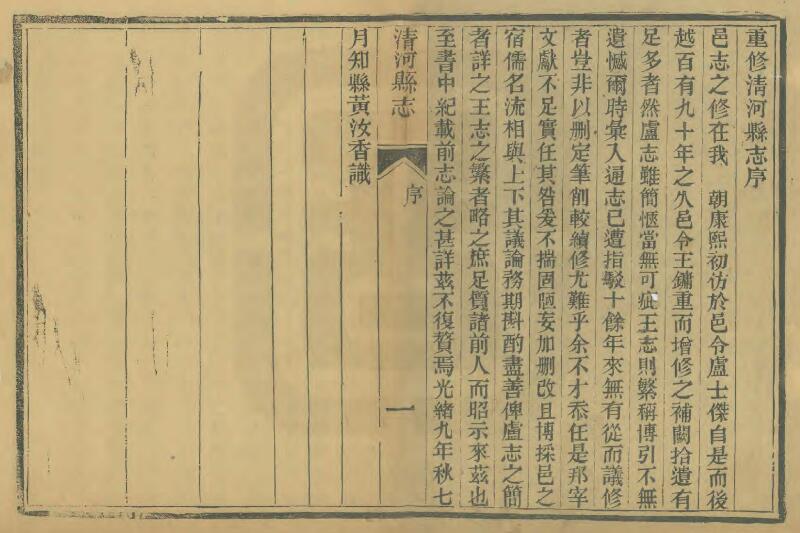 重修清河縣志序
邑志之修在我　朝康熙初彷於邑令盧士傑自是而後
越百有九十年之久邑令王鏞重而增修之補闕拾遺有
足多者然盧志雖簡愜當無可疵王志則繁稱博引不無
遺憾爾時彙入通志已遭指駁十餘年來無有從而議修
者豈非以删定筆削較續修尤難乎余不才忝任是邦宰
文獻不足實任其咎爰不揣固陋妄加删改且博採邑之
宿儒名流相與上下其議論務期斟酌盡善俾盧志之簡
者詳之王志之繁者略之庶足質諸前人而昭示來茲也
至書中紀載前志論之甚詳茲不復贅焉光緒九年秋七
清河縣志
序
一
月知縣黃汝香識